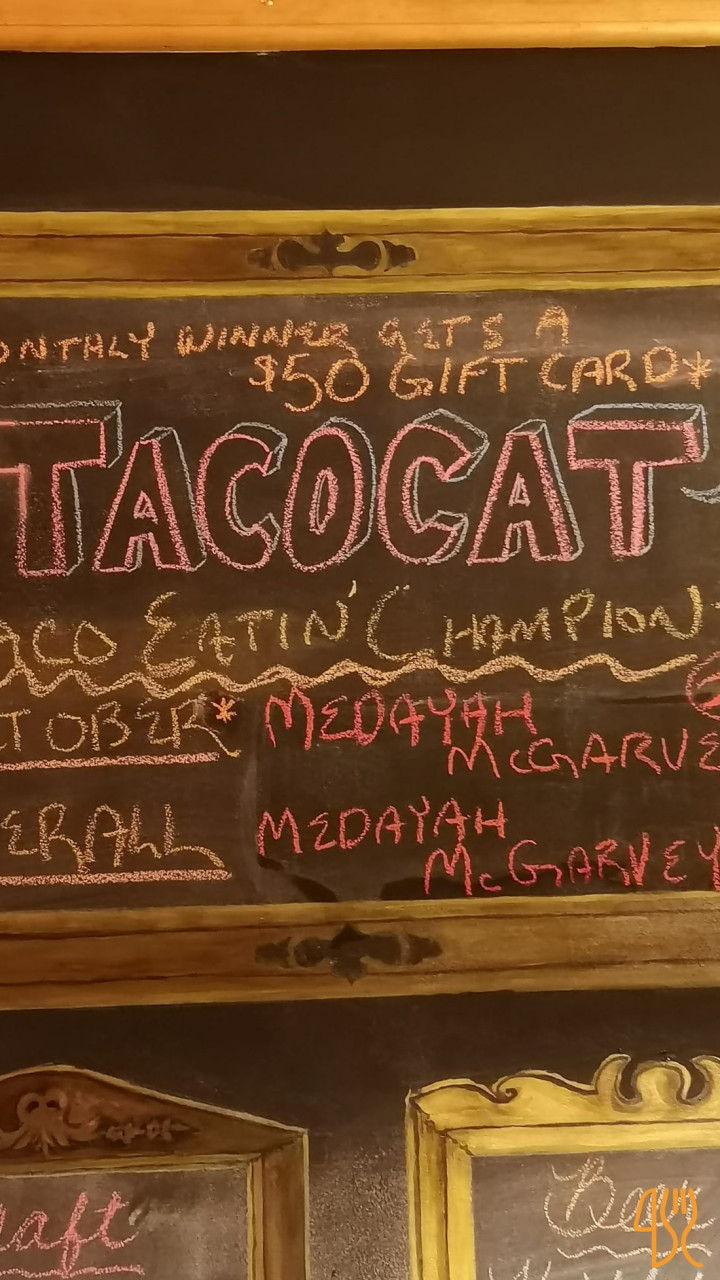 ONTHLY WINNER GETS A
$50 GIFT CARD*
TACOCAT
ACO EATIN' CHAMPION
TOBER* MEDAYAH
McGARVE
ERALL MEDAYAH
McGARVEY
raft